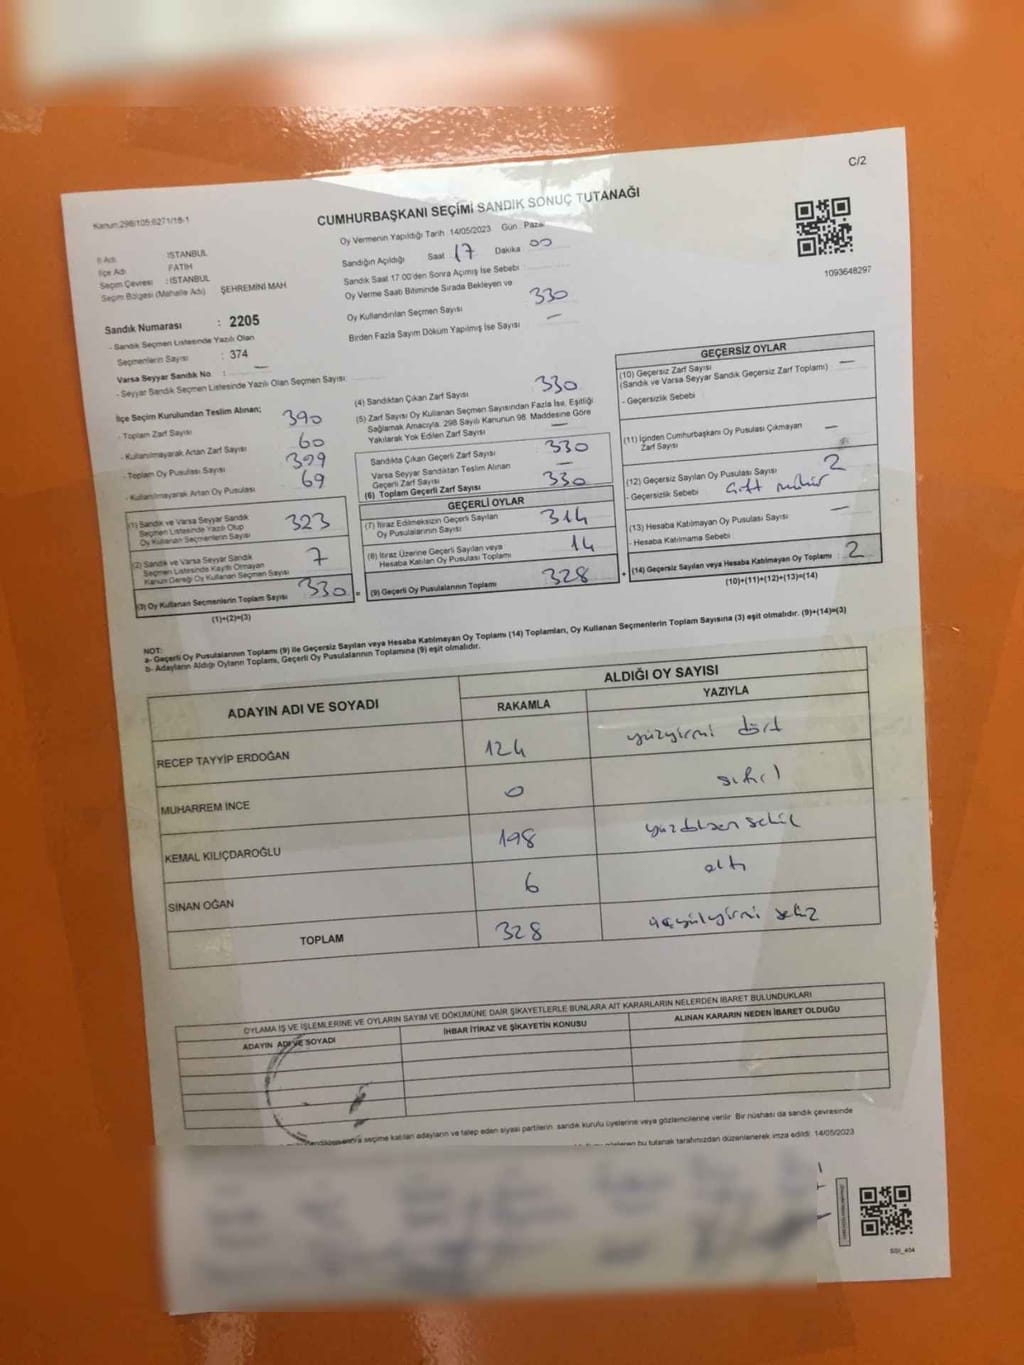 C/2
Kanun:298/105;6271/18-1
CUMHURBAŞKANI SEÇİMİ SANDIK SONUÇ TUTANAĞI
Oy Vermenin Yapıldığı Tarih 14/05/2023 Gün
İl Adı İSTANBUL
İlçe Adı FATİH
Seçim Çevresi : İSTANBUL
Seçim Bölgesi (Mahalle Adı) ŞEHREMİNİ MAH
Sandığın Açıldığı Saat 17 Dakika 00
Sandık Saat 17:00'den Sonra Açımış İse Sebebi
Oy Verme Saati Bitiminde Sırada Bekleyen ve
Oy Kullandırılan Seçmen Sayısı 330
Birden Fazla Sayım Döküm Yapılmış İse Sayısı —
1093648297
Sandık Numarası : 2205
- Sandık Seçmen Listesinde Yazılı Olan
Seçmenlerin Sayısı : 374
Varsa Seyyar Sandık No : —
- Seyyar Sandık Seçmen Listesinde Yazılı Olan Seçmen Sayısı:
İlçe Seçim Kurulundan Teslim Alınan;
- Toplam Zarf Sayısı 390
- Kullanılmayarak Artan Zarf Sayısı 60
- Toplam Oy Pusulası Sayısı 399
- Kullanılmayarak Artan Oy Pusulası 69
(1) Sandık ve Varsa Seyyar Sandık
Seçmen Listesinde Yazılı Olup
Oy Kullanan Seçmenlerin Sayısı 323
(2) Sandık ve Varsa Seyyar Sandık
Seçmen Listesinde Kayıtlı Olmayan
Kanun Gereği Oy Kullanan Seçmen Sayısı 7
(3) Oy Kullanan Seçmenlerin Toplam Sayısı 330
(1)+(2)=(3)
(4) Sandıktan Çıkan Zarf Sayısı 330
(5) Zarf Sayısı Oy Kullanan Seçmen Sayısından Fazla İse, Eşitliği
Sağlamak Amacıyla; 298 Sayılı Kanunun 98. Maddesine Göre
Yakılarak Yok Edilen Zarf Sayısı —
Sandıkta Çıkan Geçerli Zarf Sayısı 330
Varsa Seyyar Sandıktan Teslim Alınan
Geçerli Zarf Sayısı —
(6) Toplam Geçerli Zarf Sayısı 330
GEÇERLİ OYLAR
(7) İtiraz Edilmeksizin Geçerli Sayılan
Oy Pusulalarının Sayısı 314
(8) İtiraz Üzerine Geçerli Sayılan veya
Hesaba Katılan Oy Pusulası Toplamı 14
= (9) Geçerli Oy Pusulalarının Toplamı 328
GEÇERSİZ OYLAR
(10) Geçersiz Zarf Sayısı —
(Sandık ve Varsa Seyyar Sandık Geçersiz Zarf Toplamı)
- Geçersizlik Sebebi
(11) İçinden Cumhurbaşkanı Oy Pusulası Çıkmayan
Zarf Sayısı —
(12) Geçersiz Sayılan Oy Pusulası Sayısı 2
- Geçersizlik Sebebi Çift mühür
(13) Hesaba Katılmayan Oy Pusulası Sayısı —
- Hesaba Katılmama Sebebi
+ (14) Geçersiz Sayılan veya Hesaba Katılmayan Oy Toplamı 2
(10)+(11)+(12)+(13)=(14)
NOT:
a- Geçerli Oy Pusulalarının Toplamı (9) ile Geçersiz Sayılan veya Hesaba Katılmayan Oy Toplamı (14) Toplamları, Oy Kullanan Seçmenlerin Toplam Sayısına (3) eşit olmalıdır. (9)+(14)=(3)
b- Adayların Aldığı Oyların Toplamı, Geçerli Oy Pusulalarının Toplamına (9) eşit olmalıdır.
ADAYIN ADI VE SOYADI
ALDIĞI OY SAYISI
RAKAMLA YAZIYLA
RECEP TAYYİP ERDOĞAN 124 yüzyirmi dört
MUHARREM İNCE 0 sıfır
KEMAL KILIÇDAROĞLU 198 yüzdoksan sekiz
SİNAN OĞAN 6 altı
TOPLAM 328 üçyüzyirmi sekiz
OYLAMA İŞ VE İŞLEMLERİNE VE OYLARIN SAYIM VE DÖKÜMÜNE DAİR ŞİKAYETLERLE BUNLARA AİT KARARLARIN NELERDEN İBARET BULUNDUKLARI
ADAYIN ADI VE SOYADI İHBAR İTİRAZ VE ŞİKAYETİN KONUSU ALINAN KARARIN NEDEN İBARET OLDUĞU
seçime katılan adayların ve talep eden siyasi partilerin sandık kurulu üyelerine veya gözlemcilerine verilir. Bir nüshası da sandık çevresinde
bu tutanak tarafımızdan düzenlenerek imza edildi. 14/05/2023
SSI_404